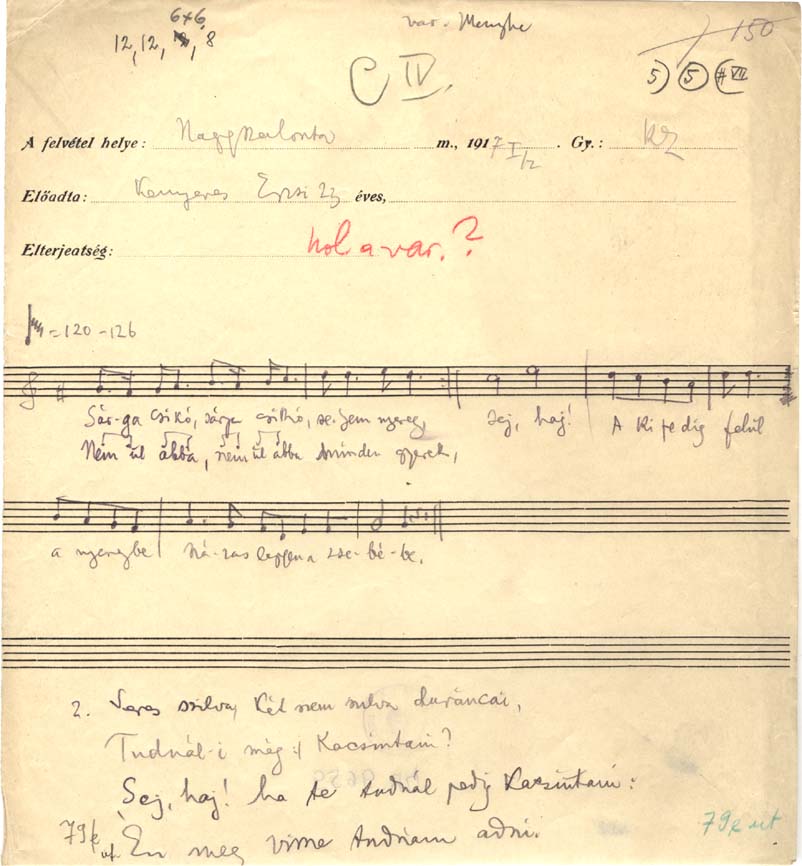 6+6
12, 12, , 8
var. Menyhe
150
5 5 VII
C IV.
A felvétel helye: Nagyszalonta m., 1917 I/2. Gy.: KZ
Előadta: Kenyeres Erzsi 23 éves,
Elterjeatség: hol a var.?
=120-126
Sár-ga csikó, sárga csikó, se-jem nyereg, Sej, haj! A ki pedig felül
Nem ül abba, nem ül abba minden gyerek,
a nyeregbe Há-zas legyen a zse-bé-be.
2. Veres szilva, két nem szilva duráncai,
Tudnál-i még :/ Kacsintani?
Sej, haj! ha te tudnál pedig Kacsintani:
79/e ut. Én meg vissza tudnám adni.
79e ut